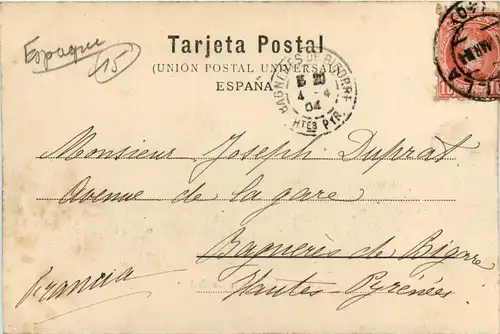 Espagne
15
Tarjeta Postal
(UNIÓN POSTAL UNIVERSAL)
ESPAÑA
BAGNÈRES DE BIGORRE
20
4 - 4
04
HTES PYR.
MAR 04
10 10
Monsieur Joseph Duprat
Avenue de la gare
Bagnères de Bigorre
Hautes Pyrénées
Francia